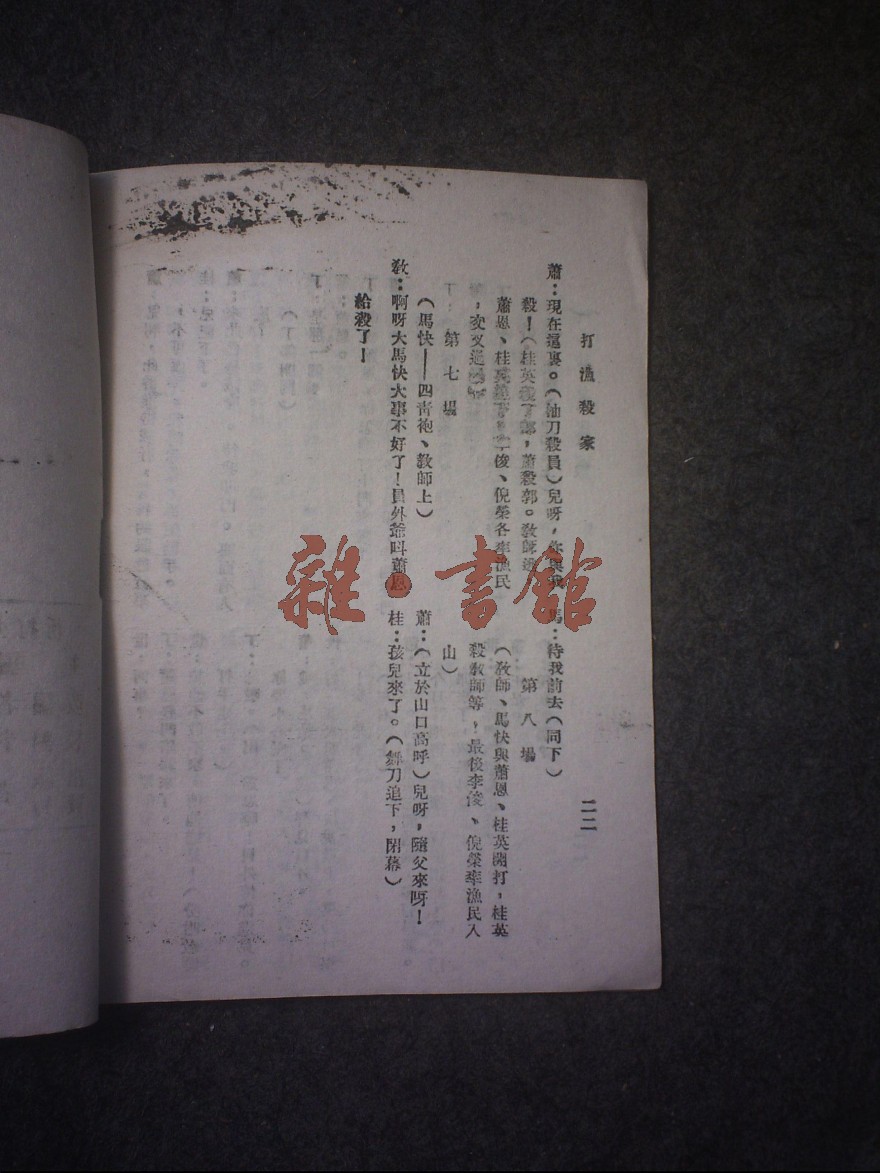 打漁殺家
二二
蕭：現在這裏。（抽刀殺員）兒呀，你與我
殺！（桂英殺丁郎，蕭殺郭。教師逃
蕭恩、桂英追下，李俊、倪榮各率漁民
，交叉過場）
第七場
（馬快——四靑袍、敎師上）
敎：啊呀大馬快大事不好了！員外爺叫蕭恩
給殺了！
馬：待我前去（同下）
第八場
（敎師、馬快與蕭恩、桂英開打，桂英
殺敎師等，最後李俊、倪榮率漁民入
山）
蕭：（立於山口高呼）兒呀，隨父來呀！
桂：孩兒來了。（舞刀追下，閉幕）
雜·書館